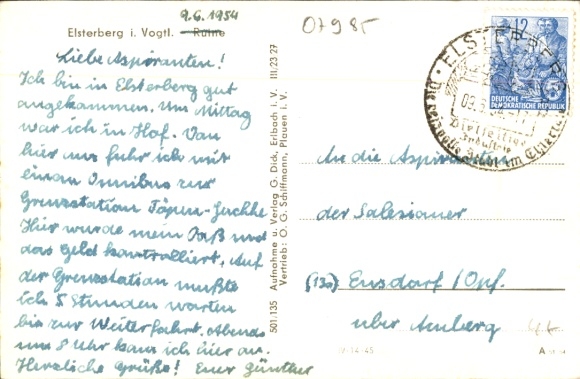 9.6.1954
Elsterberg i. Vogtl. Ruine
07985
Liebe Aspiranten!
Ich bin in Elsterberg gut
angekommen. Um Mittag
war ich in Hof. Von
hier aus fuhr ich mit
einem Omnibus zur
Grenzstation Töpen-Juchhe
Hier wurde mein Paß und
das Geld kontrolliert. Auf
der Grenzstation mußte
ich 5 Stunden warten
bis zur Weiterfahrt. Abends
um 8 Uhr kam ich hier an.
Herzliche Grüße! Euer Günther
501.135 Aufnahme u. Verlag G. Dick, Erlbach i. V. III.23 27
Vertrieb: O. G. Schiffmann, Plauen i. V.
12
DEUTSCHE
DEMOKRATISCHE REPUBLIK
ELSTERBERG
An die Aspiranten
der Salesianer
(13a) Ensdorf/Opf.
über Amberg
14145